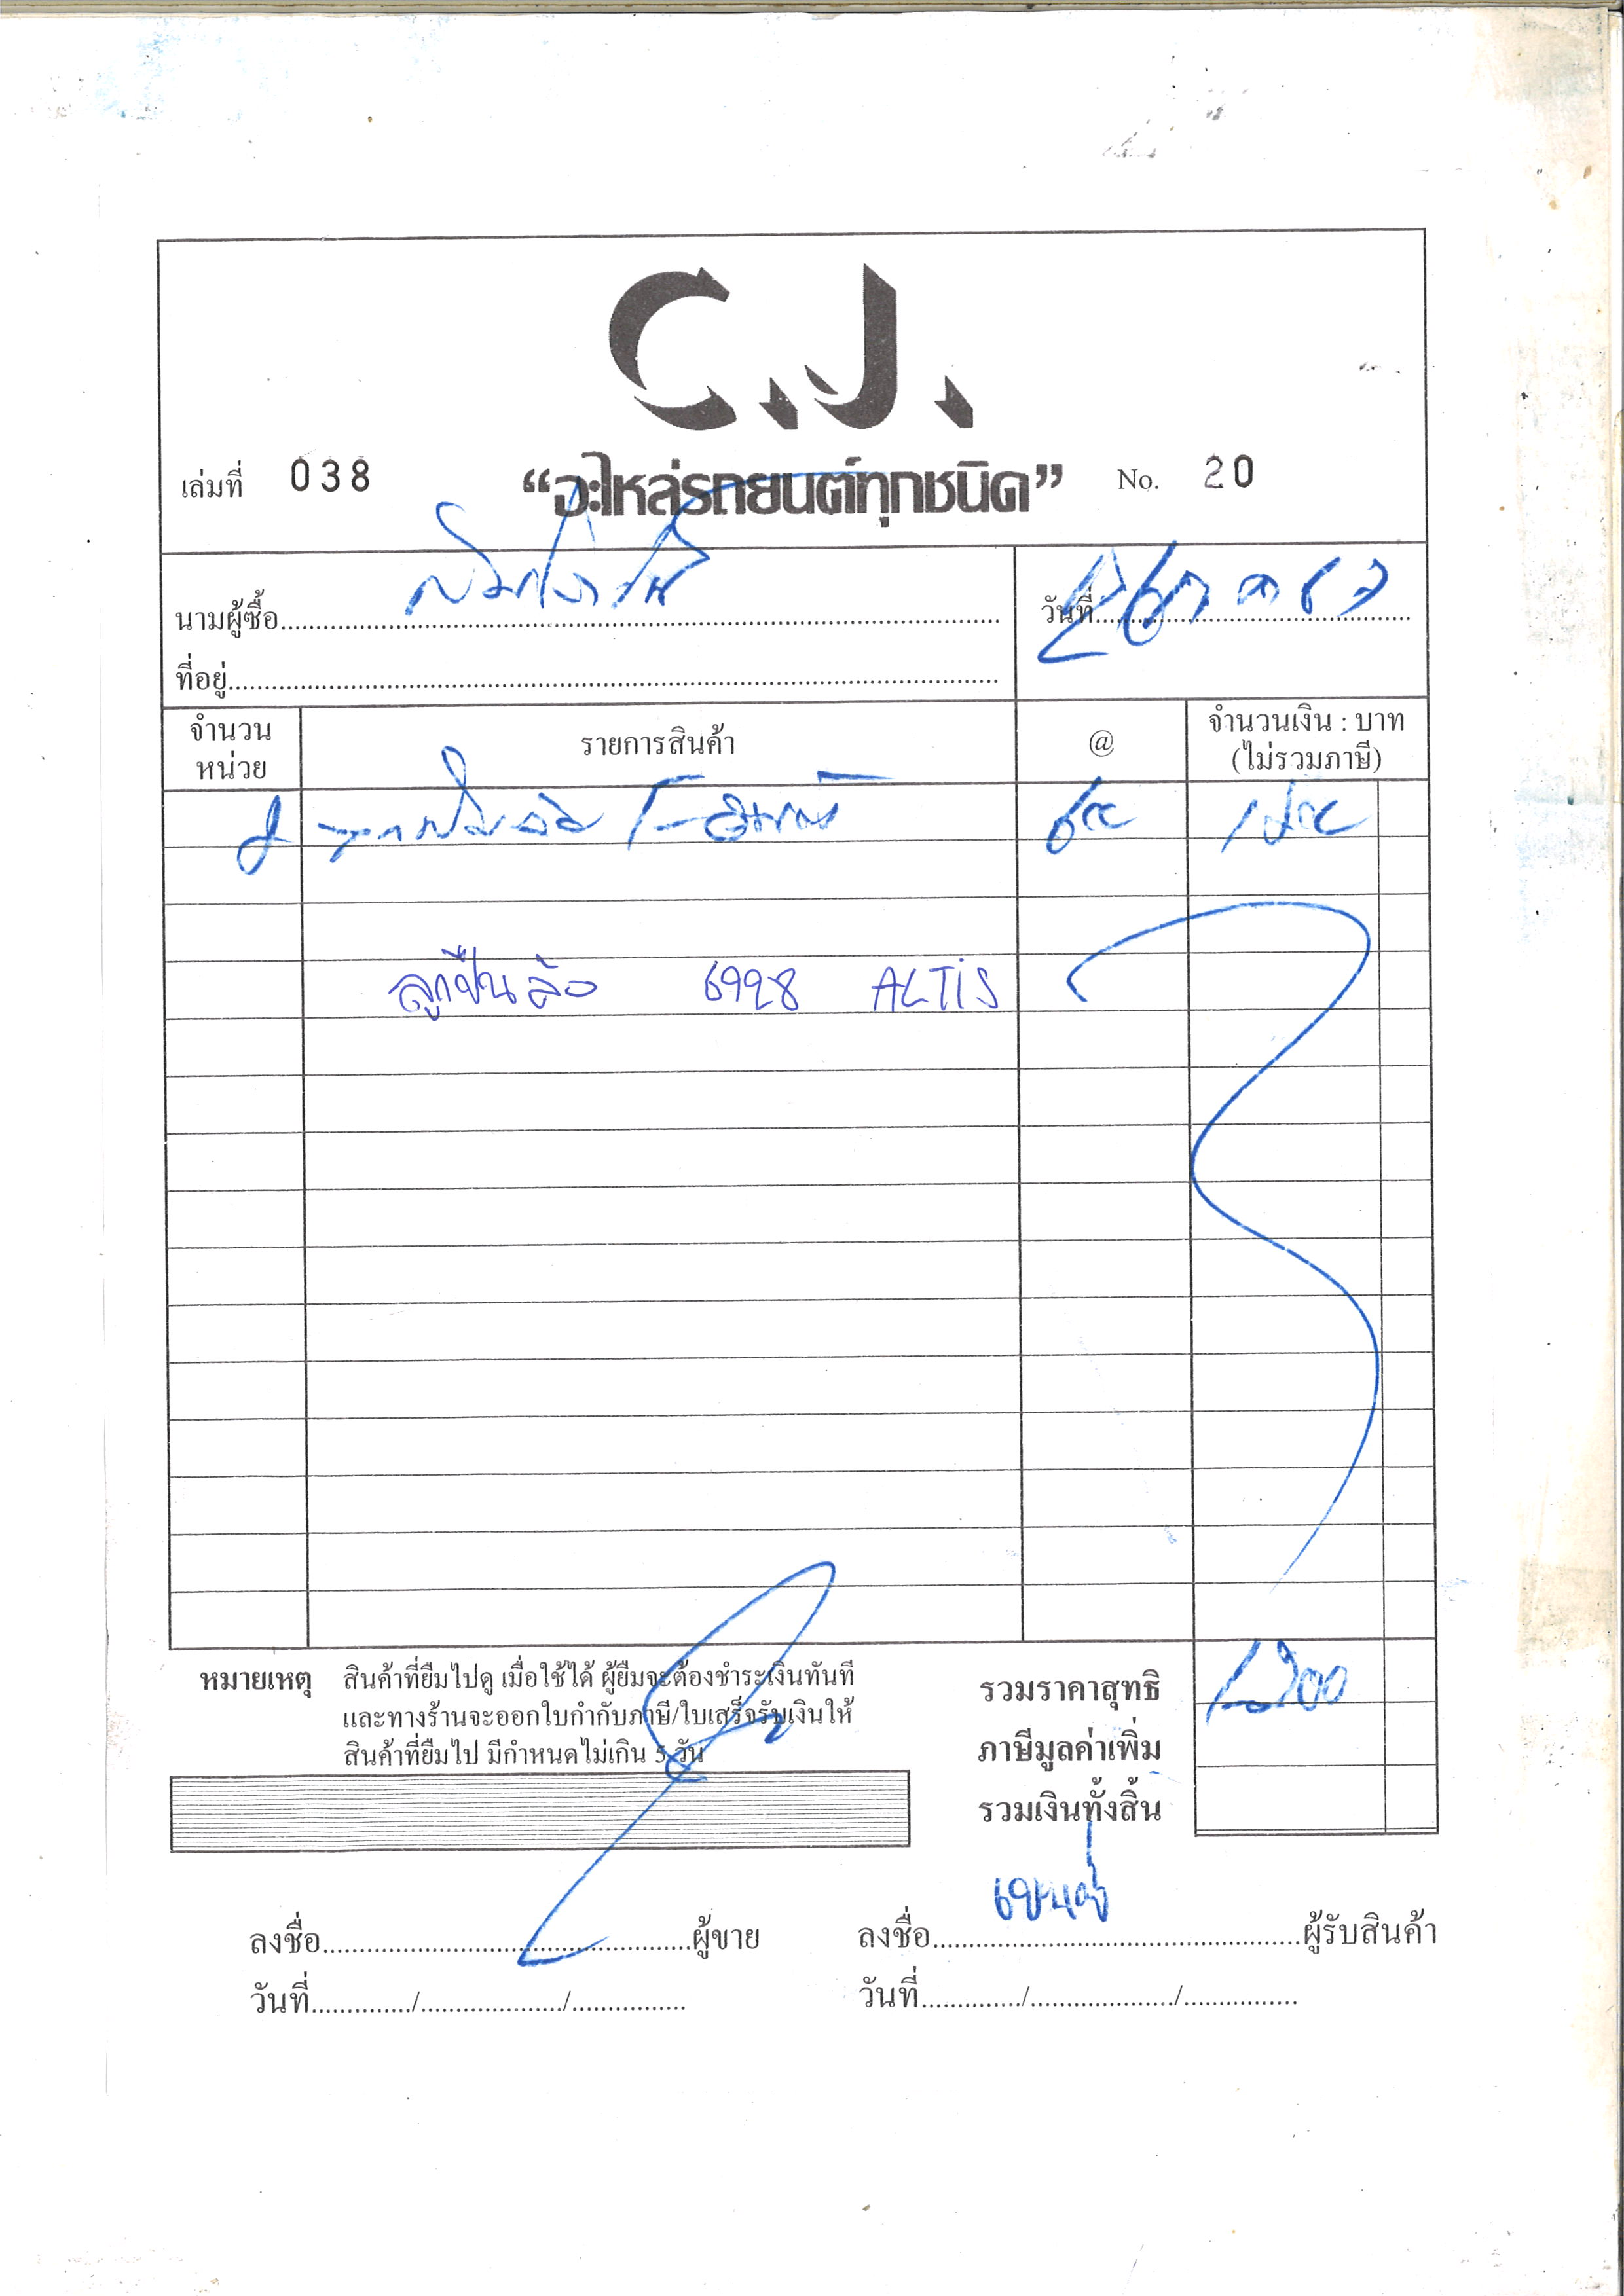 C.J.
เล่มที่ 038 “อะไหล่รถยนต์ทุกชนิด” No. 20
นามผู้ซื้อ
วันที่
ที่อยู่
จำนวนหน่วย รายการสินค้า @ จำนวนเงิน : บาท (ไม่รวมภาษี)
2
ลูกปืนล้อ 6928 ALTIS
หมายเหตุ สินค้าที่ยืมไปดู เมื่อใช้ได้ ผู้ยืมจะต้องชำระเงินทันที
และทางร้านจะออกใบกำกับภาษี/ใบเสร็จรับเงินให้
สินค้าที่ยืมไป มีกำหนดไม่เกิน 5 วัน
รวมราคาสุทธิ 1200
ภาษีมูลค่าเพิ่ม
รวมเงินทั้งสิ้น
ลงชื่อ ผู้ขาย
วันที่ / /
ลงชื่อ ผู้รับสินค้า
วันที่ / /